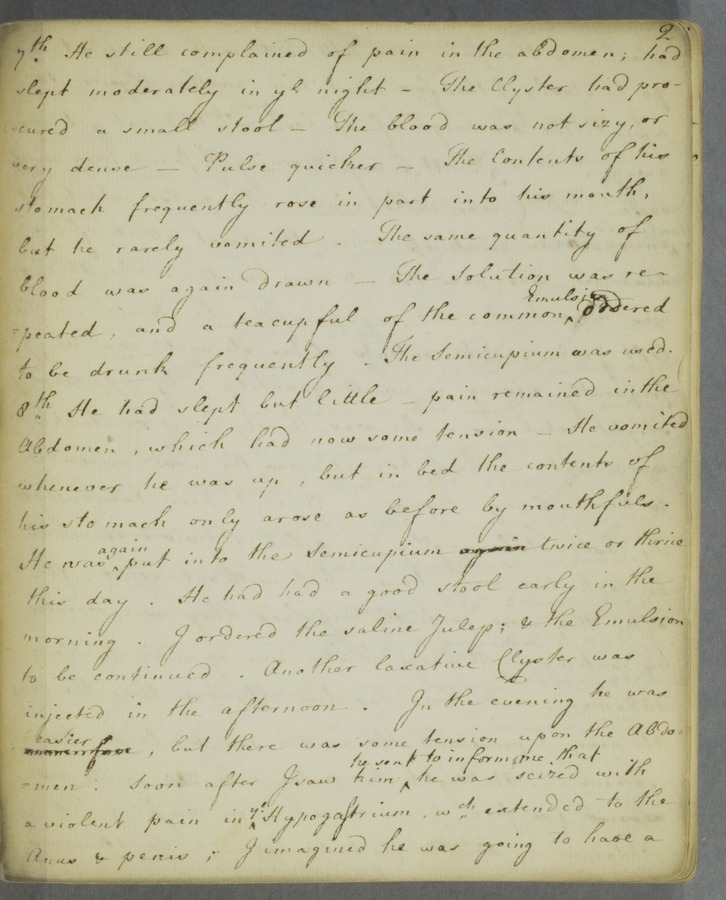 2
7th. He still complained of pain in the abdomen; had
slept moderately in ye night - The Clyster had pro-
-cured a small stool - The blood was not sizy, or
very dense - Pulse quicker - The Contents of his
stomach frequently rose in part into his mouth,
but he rarely vomited. The same quantity of
blood was again drawn - The Solution was re-
Emulsion
-peated, and a teacupful of the common ‸ ordered
to be drunk frequently. The Semicupium was used.
8th He had slept but little - pain remained in the
Abdomen, which had now some tension - He vomited
whenever he was up, but in bed the contents of
his stomach only arose as before by mouthfuls.
again
He was ‸ put into the Semicupium again twice or thrice
this day. He had had a good stool early in the
morning. I ordered the saline Julep; & the Emulsion
to be continued. Another laxative Clyster was
injected in the afternoon. In the evening he was
easier
, but there was some tension upon the Abdo=
he sent to inform me that
=men. Soon after I saw him ‸ he was seized with
a violent pain in ye Hypogastrium, wch extended to the
Anus & penis; I imagined he was going to have a